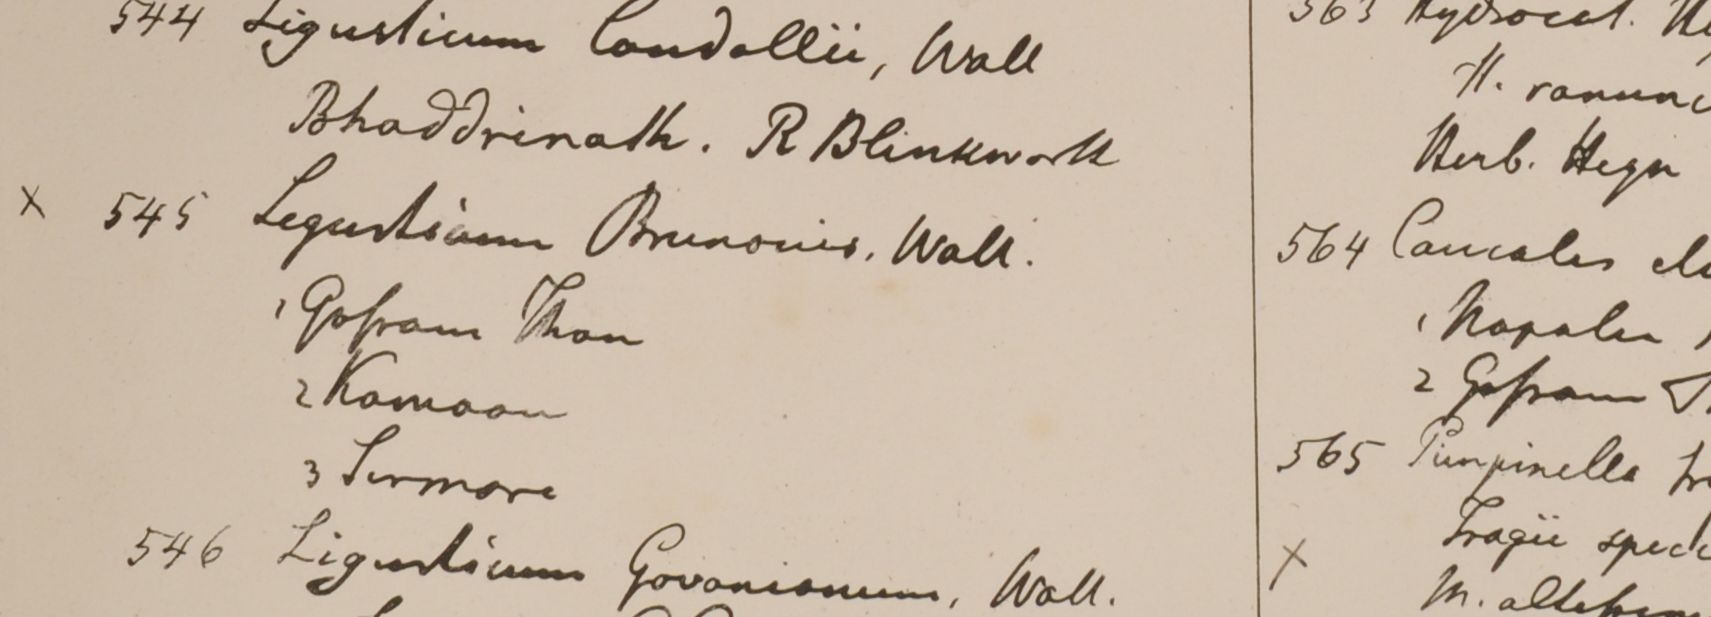 544 Ligusticum Candollii, Wall
Bhaddrinath. R Blinkworth
x 545 Ligusticum Brunonis. Wall.
1 Gossam Than
2 Kamaon
3 Sirmore
546 Ligusticum Govanianum, Wall.
563 Hydrocot.
H. ranunc
Herb. Heyn
564 Caucalis
1 Napalia
2 Gossam
565 Pimpinella
Tragii speci
x M. altissim